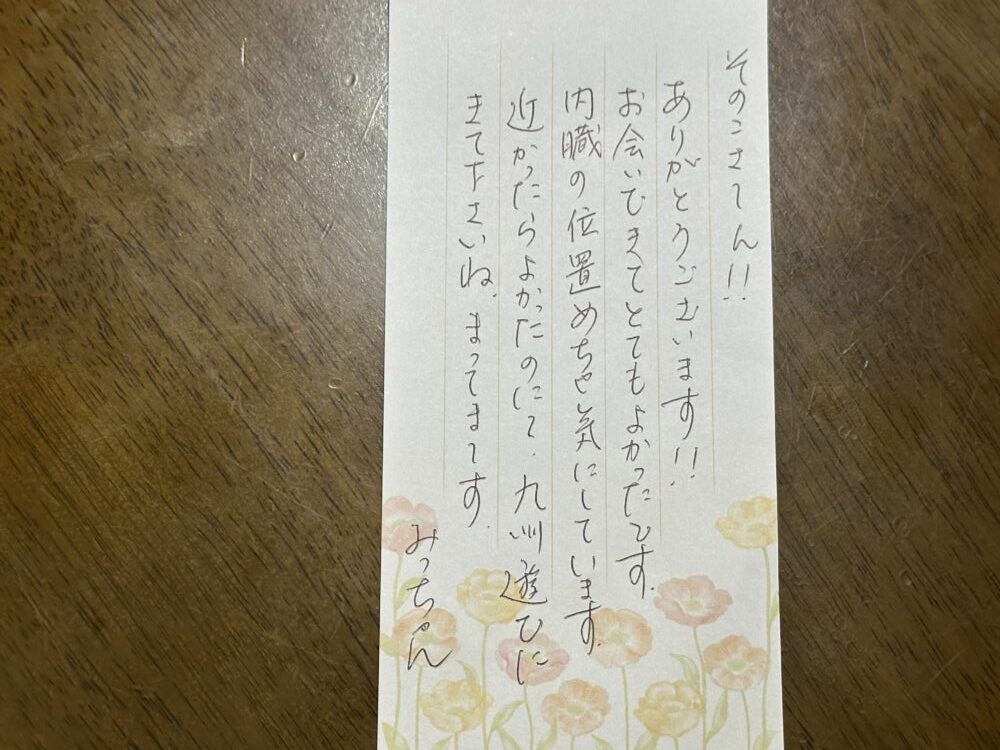 そのこさーん!!
ありがとうございます!!
お会いできてとてもよかったです.
内職の位置めちゃ気にしています.
近かったらよかったのにー. 九州遊びに
きてくださいね. まってまーす.
みっちゃん